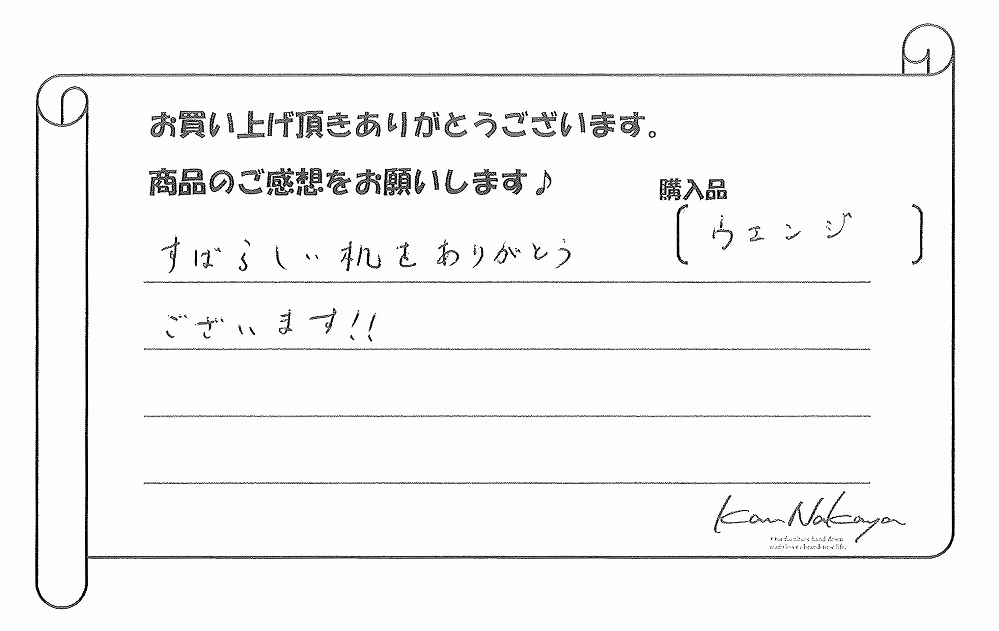 お買い上げ頂きありがとうございます。
商品のご感想をお願いします♪
購入品
[ウエンジ]
すばらしい机をありがとう
ございます!!
Kan Nakaya
Our furniture hand down
tradition to brand-new life.